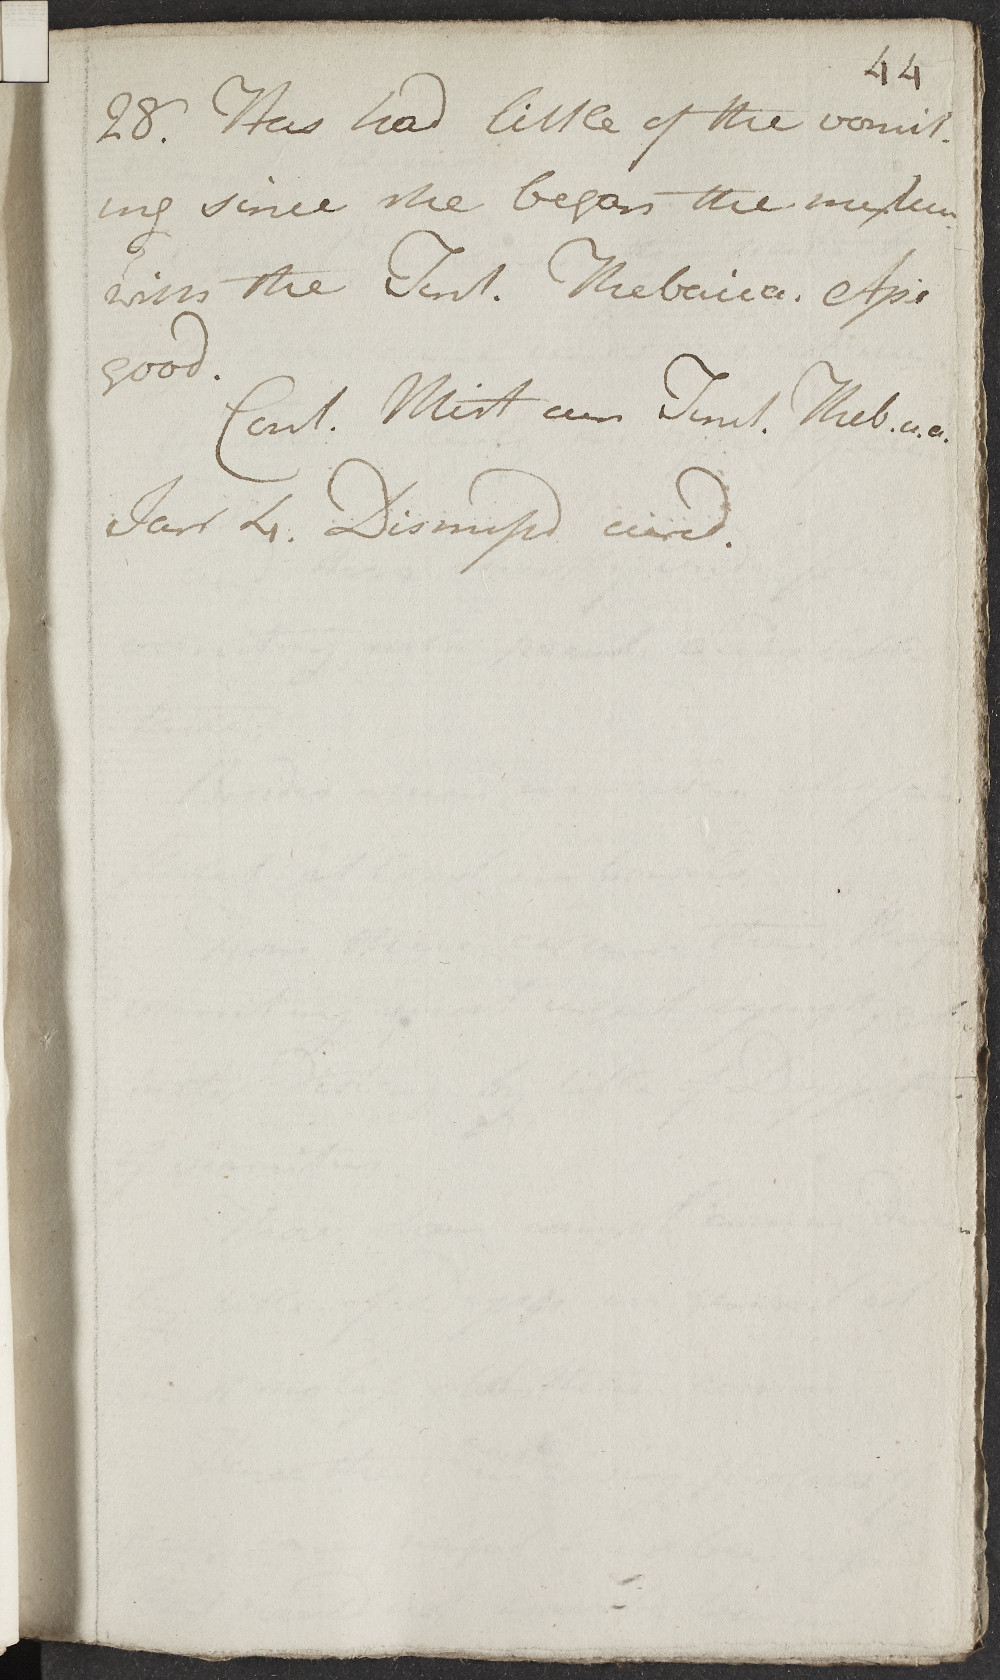 44
28. Has had little of the vomit-
ing since she began the mixture
with the Tinct. Thebaica. App
good.
Cont. Mist cum Tinct. Thebaica.
Jan 4. Dismissd cured.